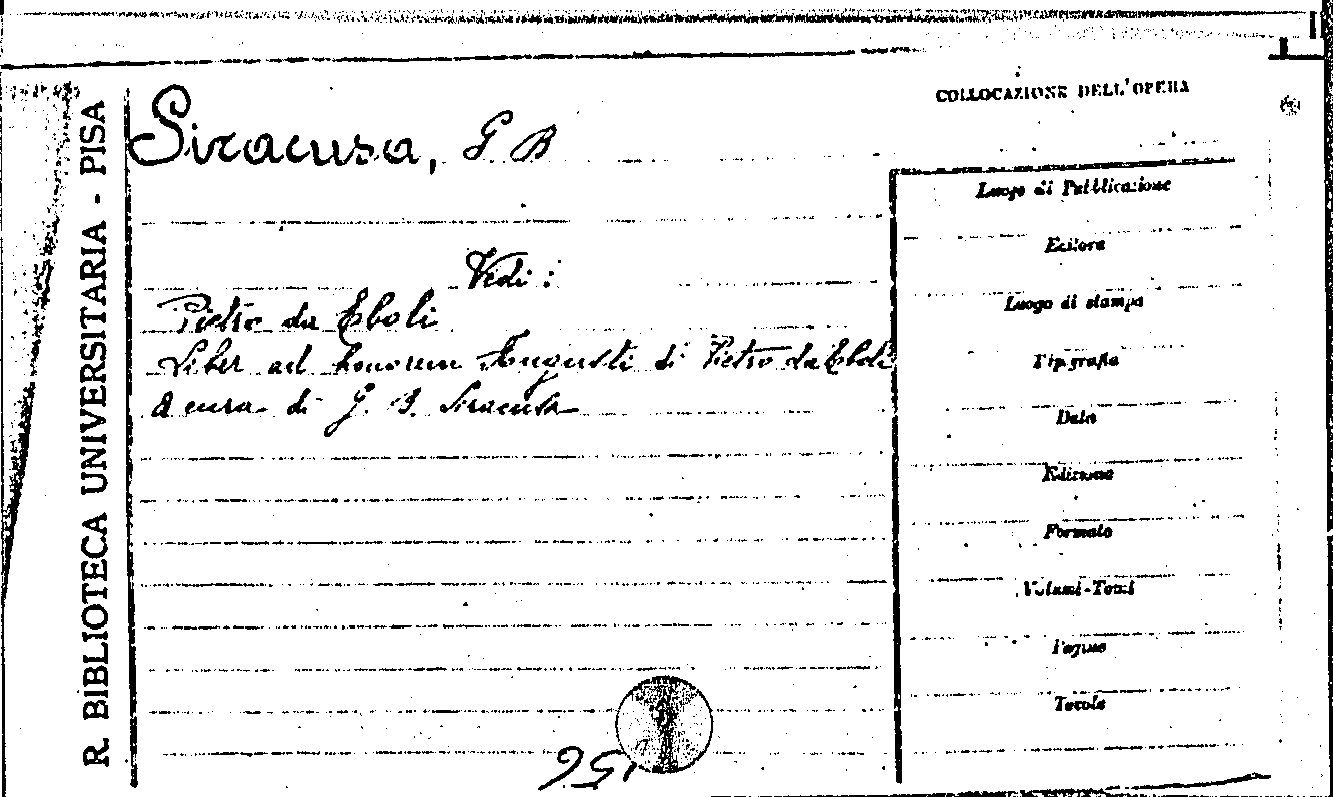 R. BIBLIOTECA UNIVERSITARIA - PISA
Siracusa, G B
Vedi:
Pietro da Eboli
Liber ad honorem Augusti di Pietro da Eboli
a cura di G. B. Siracusa
COLLOCAZIONE DELL'OPERA
Luogo di Pubblicazione
Editore
Luogo di stampa
Tipografia
Data
Edizione
Formato
Volumi-Tomi
Pagine
Tavole